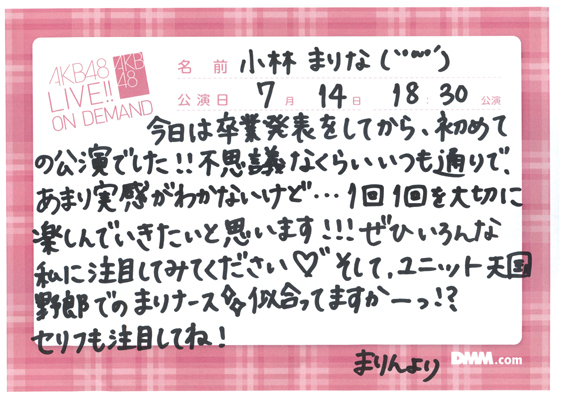 AKB48
LIVE!!
ON DEMAND
AKB
48
名前 小林 まりな(˘˘ω˘˘)
公演日 7月 14日 18:30公演
今日は卒業発表をしてから、初めて
の公演でした!!不思議なくらいいつも通りで、
あまり実感がわかないけど…1回1回を大切に
楽しんでいきたいと思います!!!ぜひいろんな
私に注目してみてください♡そして、ユニット天国
野郎でのまりナース似合ってますかーっ!?
セリフも注目してね!
まりんより
DMM.com